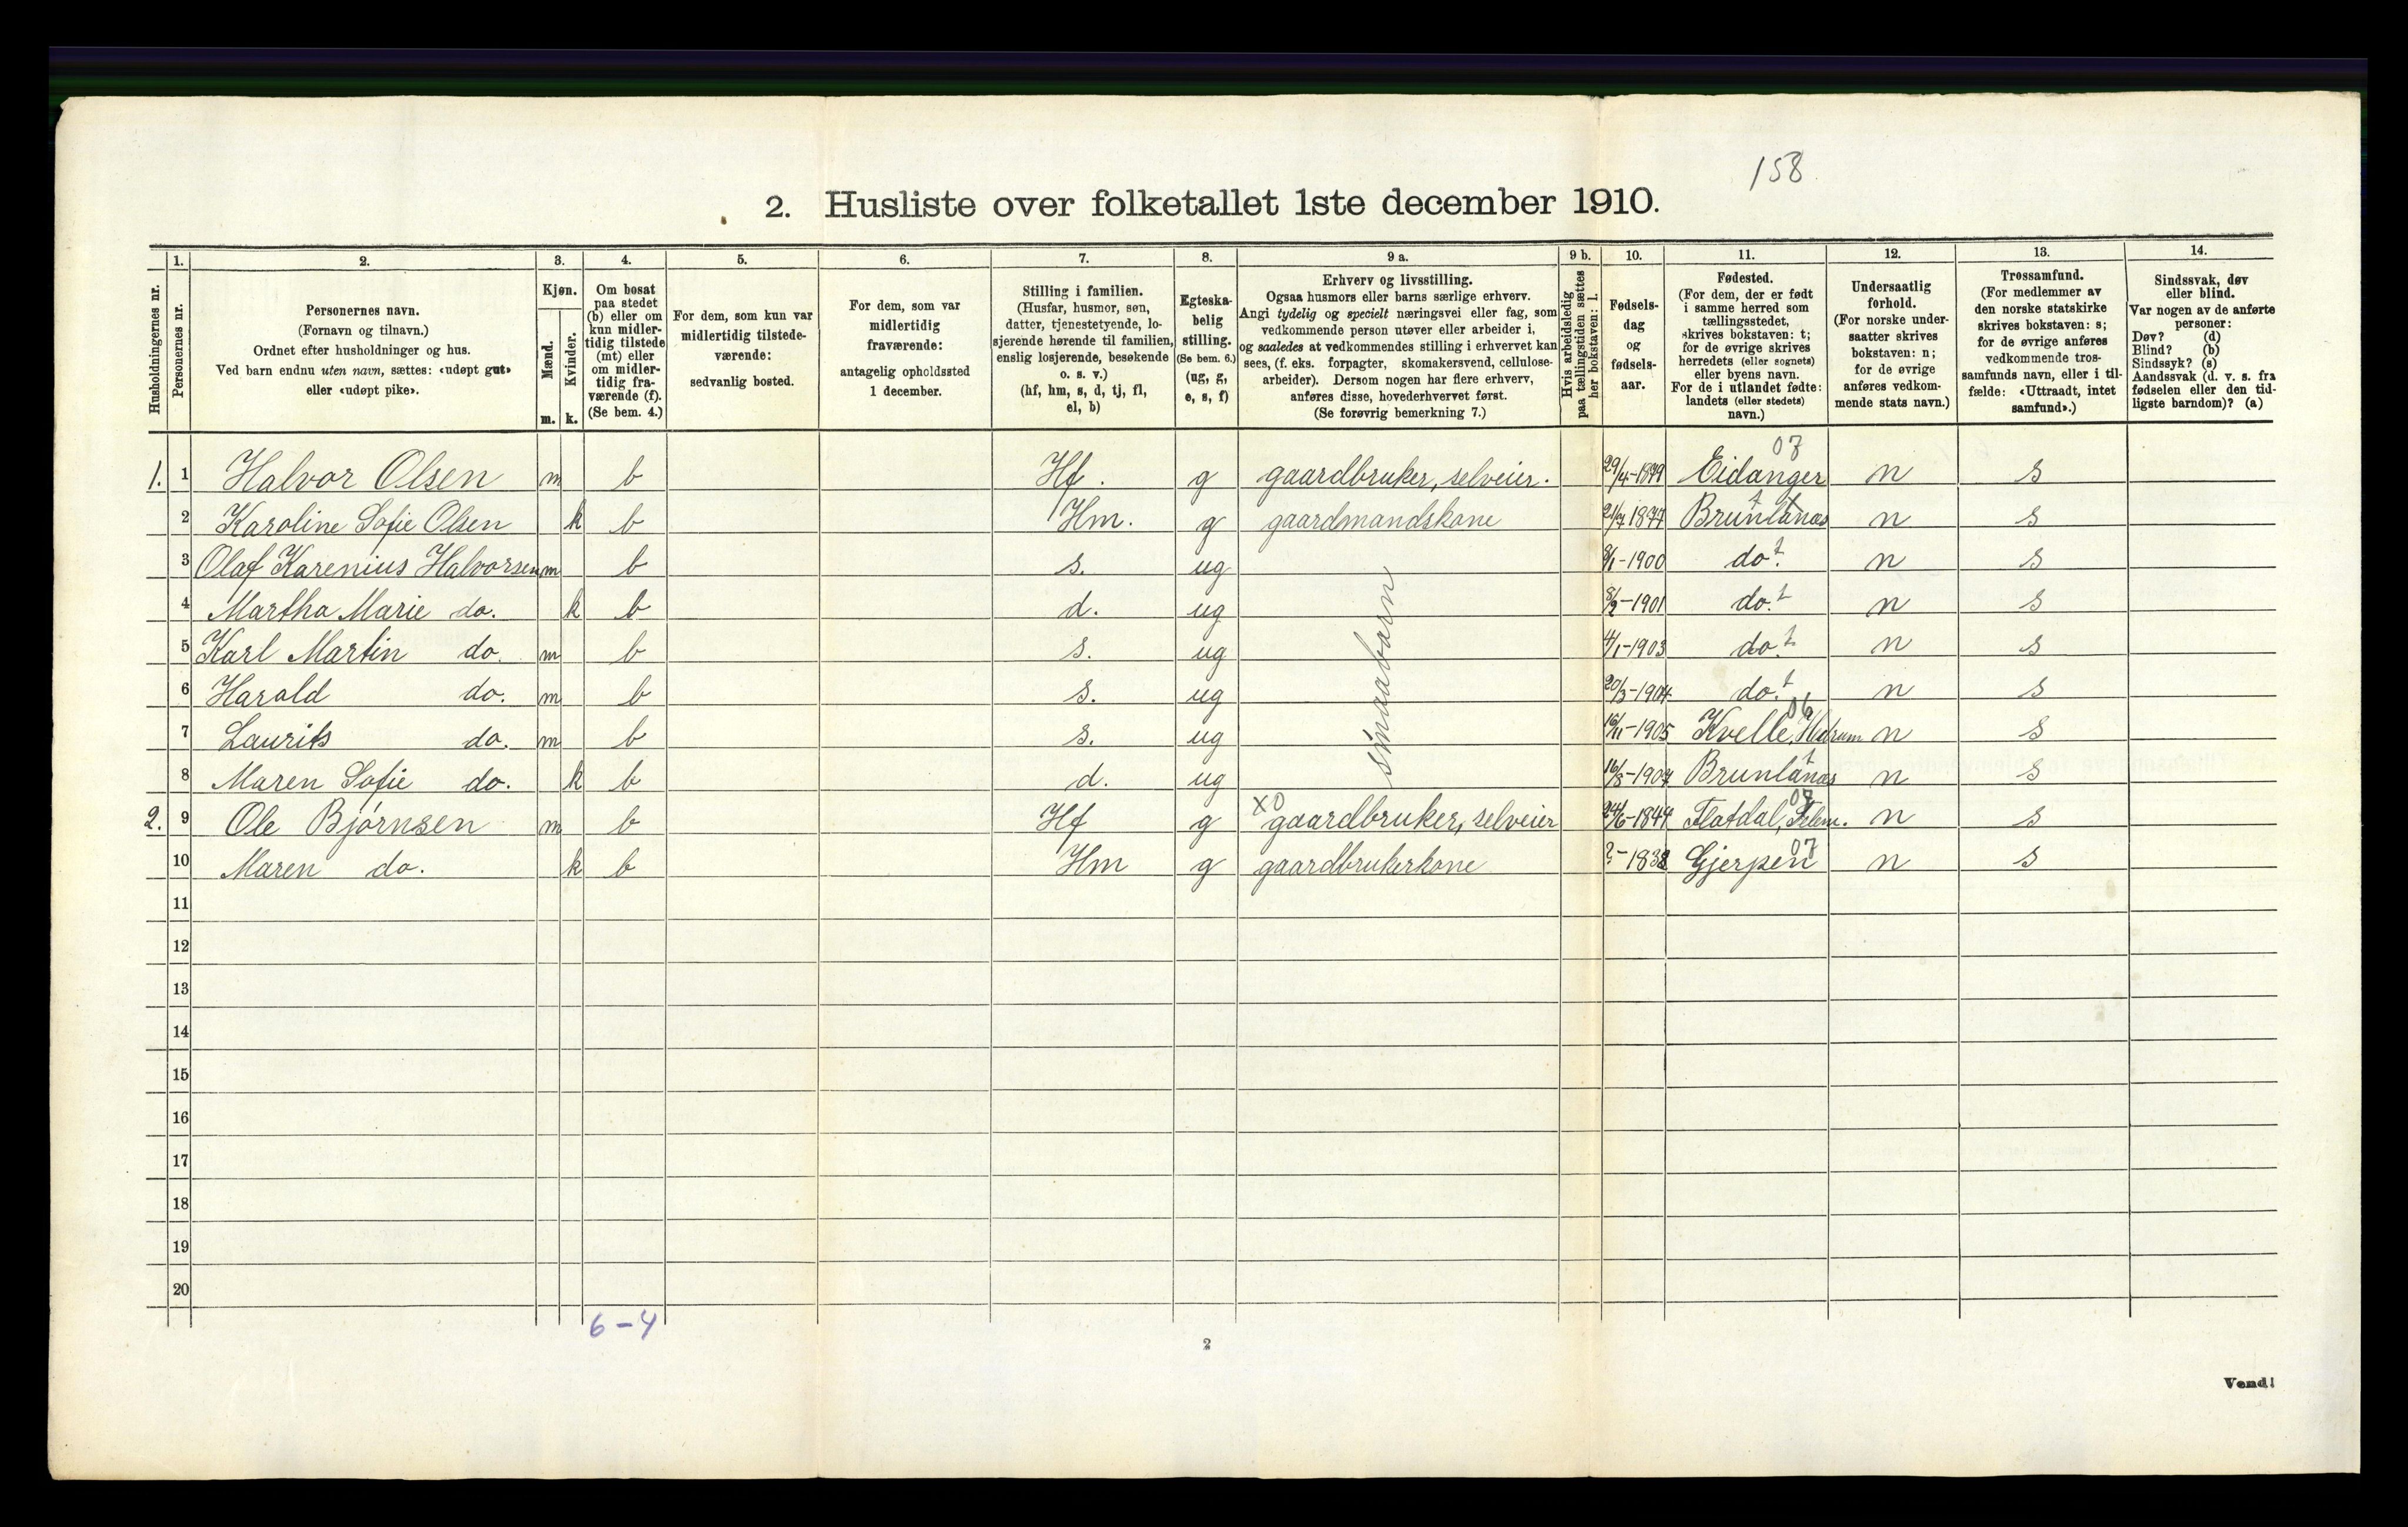 158
2. Husliste over folketallet 1ste december 1910.
Husholdningernes nr.
1.
Personernes nr.
2.
Personernes navn.
(Fornavn og tilnavn.)
Ordnet efter husholdninger og hus.
Ved barn endnu uten navn, sættes: «udøpt gut»
eller «udøpt pike».
3.
Kjøn.
Mænd.
Kvinder.
m. k.
4.
Om bosat
paa stedet
(b) eller om
kun midler-
tidig tilstede
(mt) eller
om midler-
tidig fra-
værende (f).
(Se bem. 4.)
5.
For dem, som kun var
midlertidig tilstede-
værende:
sedvanlig bosted.
6.
For dem, som var
midlertidig
fraværende:
antagelig opholdssted
1 december.
7.
Stilling i familien.
(Husfar, husmor, søn,
datter, tjenestetyende, lo-
sjerende hørende til familien,
enslig losjerende, besøkende
o. s. v.)
(hf, hm, s, d, tj, fl,
el, b)
8.
Egteska-
belig
stilling.
(Se bem. 6.)
(ug, g,
e, s, f)
9 a.
Erhverv og livsstilling.
Ogsaa husmors eller barns særlige erhverv.
Angi tydelig og specielt næringsvei eller fag, som
vedkommende person utøver eller arbeider i,
og saaledes at vedkommendes stilling i erhvervet kan
sees, (f. eks. forpagter, skomakersvend, cellulose-
arbeider). Dersom nogen har flere erhverv,
anføres disse, hovederhvervet først.
(Se forøvrig bemerkning 7.)
9 b.
Hvis arbeidsledig
paa tællingstiden sættes
her bokstaven: l.
10.
Fødsels-
dag
og
fødsels-
aar.
11.
Fødested.
(For dem, der er født
i samme herred som
tællingsstedet,
skrives bokstaven: t;
for de øvrige skrives
herredets (eller sognets)
eller byens navn.
For de i utlandet fødte:
landets (eller stedets)
navn.)
12.
Undersaatlig
forhold.
(For norske under-
saatter skrives
bokstaven: n;
for de øvrige
anføres vedkom-
mende stats navn.)
13.
Trossamfund.
(For medlemmer av
den norske statskirke
skrives bokstaven: s;
for de øvrige anføres
vedkommende tros-
samfunds navn, eller i til-
fælde: «Uttraadt, intet
samfund».)
14.
Sindssvak, døv
eller blind.
Var nogen av de anførte
personer:
Døv? (d)
Blind? (b)
Sindssyk? (s)
Aandssvak (d. v. s. fra
fødselen eller den tid-
ligste barndom)? (a)
07
1. 1 Halvor Olsen m b Hf. g gaardbruker, selveier. 29/4-1879 Eidanger n s
2 Karoline Sofie Olsen k b Hm. g gaardmandskone 21/7 1877 Brunlanæs t n s
3 Olaf Karenius Halvorsen m b s. ug 8/1-1900 do. t n s
4 Martha Marie do. k b d. ug 8/2-1901 do. t n s
5 Karl Martin do. m b s. ug 4/1-1903 do. t n s
6 Harald do. m b s. ug 20/3-1904 do. t n s
smaabarn
06
7 Laurits do. m b s. ug 15/11-1905 Kvelle, Hedrum n s
8 Maren Sofie do. k b d. ug 16/8-1907 Brunlanæs t n s
X0 07
2. 9 Ole Bjørnsen m b Hf g gaardbruker, selveier 24/6-1844 Flatdal, Telem. n s
07
10 Maren do. k b Hm g gaardbrukerkone ?-1838 Gjerpen n s
11
12
13
14
15
16
17
18
19
20
6-4
2
Vend!